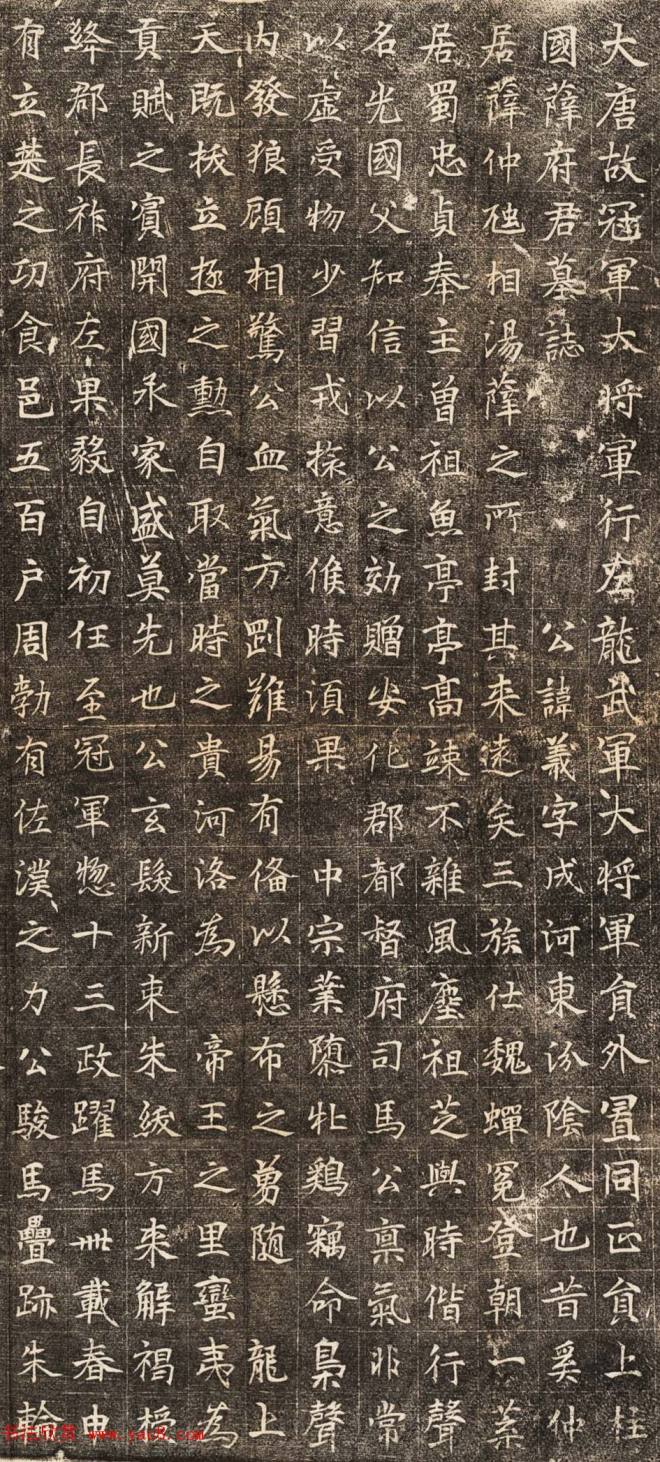 大唐故冠軍大將軍行左龍武軍大將軍員外置同正員上柱
國薛府君墓誌 公諱義字成河東汾陰人也昔奚仲
居薛仲虺相湯薛之所封其来遠矣三族仕魏蟬冕登朝一葉
居蜀忠貞奉主曽祖魚亭亭高竦不雜風塵祖芝與時偕行聲
名光國父知信以公之効贈安化郡都督府司馬公禀氣非常
以虛受物少習戎掾意候時湏果 中宗業隳牝鷄竊命梟聲
内發狼顧相驚公血氣方剛難易有俻以懸布之勇随 龍上
天既拔立極之勲自取當時之貴河洛為 帝王之里蠻夷為
貢賦之賔開國承家盛莫先也公玄髮新束朱紱方来解褐授
絳郡長祚府左果毅自初任至冠軍惣十三政躍馬卌載春由
有立楚之功食邑五百户周勃有佐漢之力公駿馬疊跡朱輪
书法欣赏 www.yac8.com